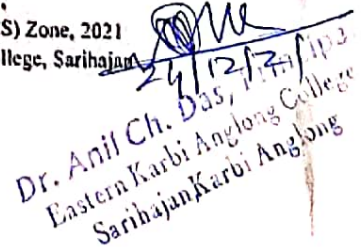 S) Zone, 2021
llege, Sarihajan
24/12/21
Dr. Anil Ch. Das,
Eastern Karbi Anglong College
Sarihajan Karbi Anglong